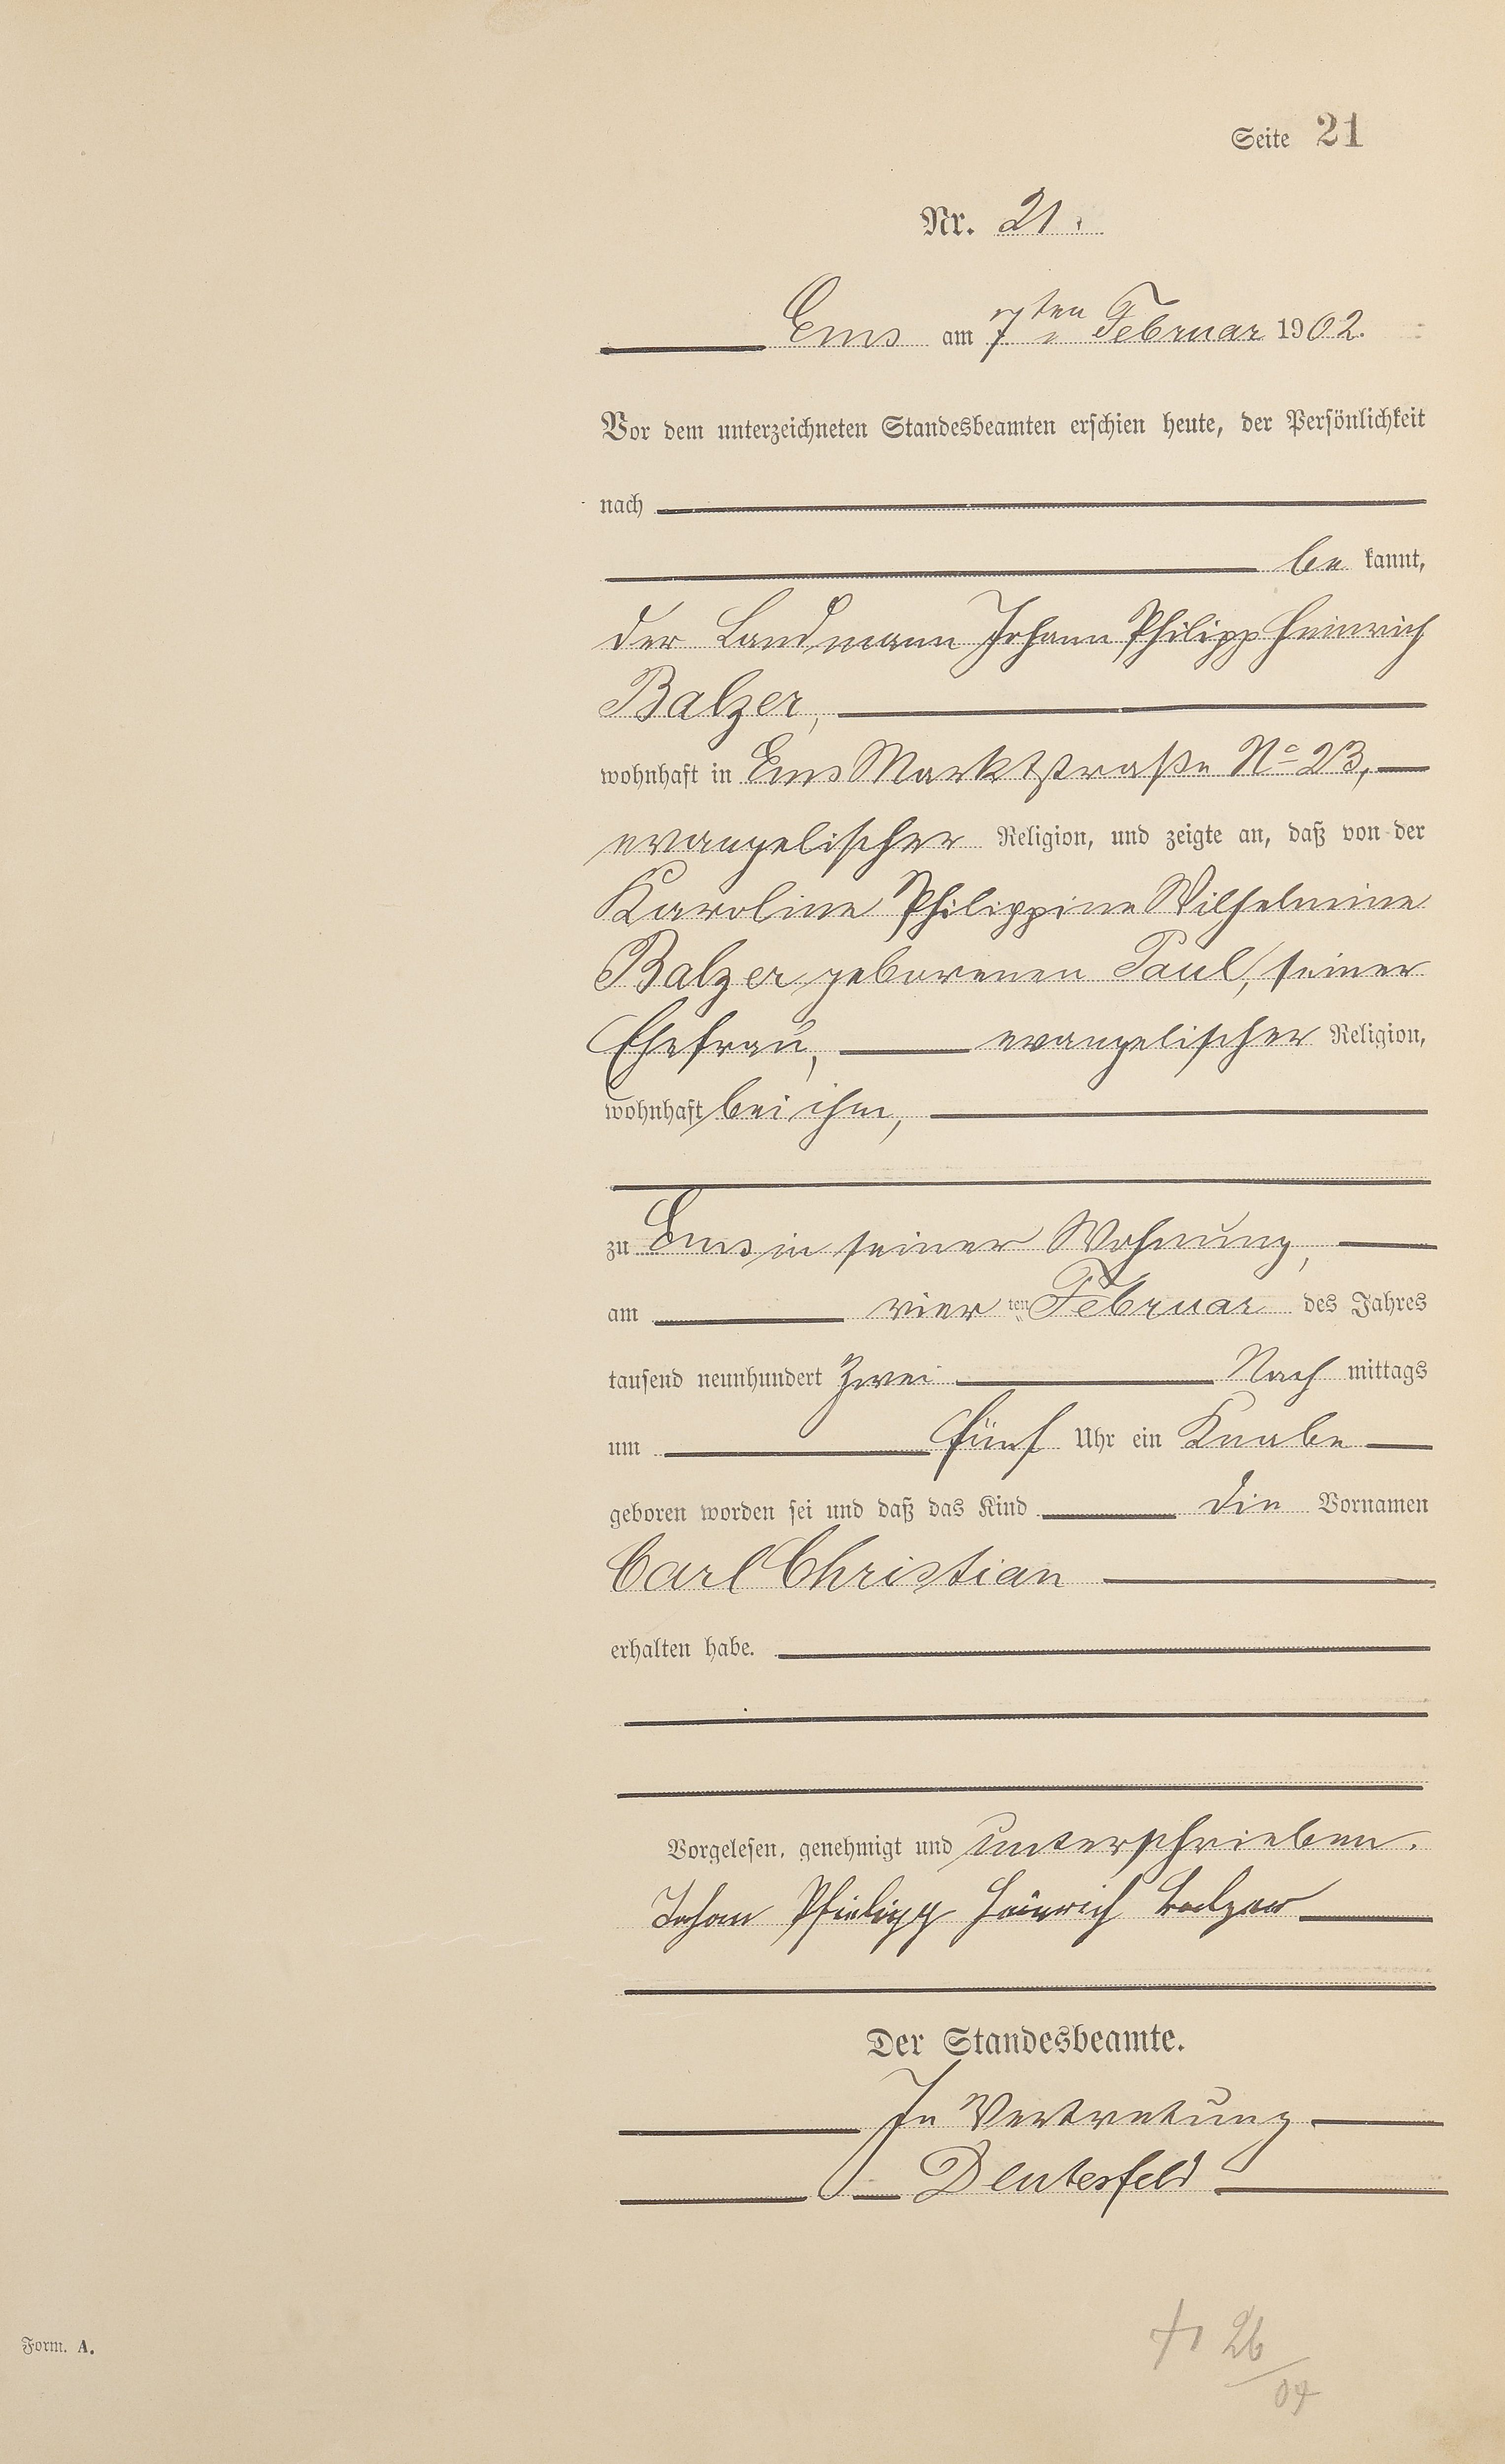 Seite 21
Nr. 21.
Ems am 7ten Februar 1902.
Vor dem unterzeichneten Standesbeamten erschien heute, der Persönlichkeit
nach
be kannt,
der Landmann Johann Philipp Heinrich
Balzer,
wohnhaft in Ems Marktstraße No 23,
evangelischer Religion, und zeigte an, daß von der
Karoline Philippine Wilhelmine
Balzer geborenen Paul, seiner
Ehefrau, evangelischer Religion,
wohnhaft bei ihm,
zu Ems in seiner Wohnung,
am vier ten Februar des Jahres
tausend neunhundert zwei Nach mittags
um fünf Uhr ein Knabe
geboren worden sei und daß das Kind die Vornamen
Carl Christian
erhalten habe.
Vorgelesen, genehmigt und unterschrieben.
Johan Phielipp Heinrich Balzer
Der Standesbeamte.
In Vertretung
Form. A.
26